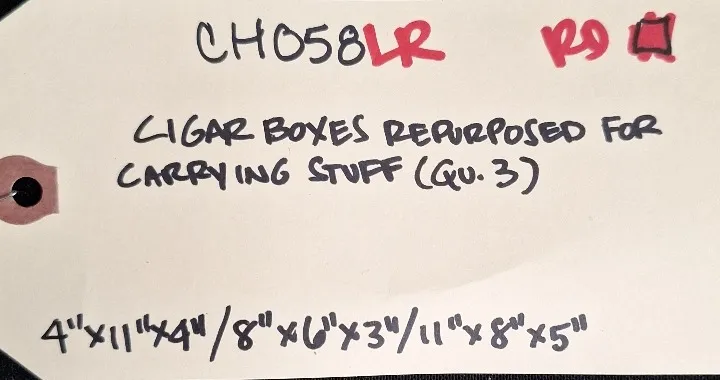 CH058LR RD
CIGAR BOXES REPURPOSED FOR
CARRYING STUFF (QU. 3)
4"x11"x4"/8"x6"x3"/11"x8"x5"